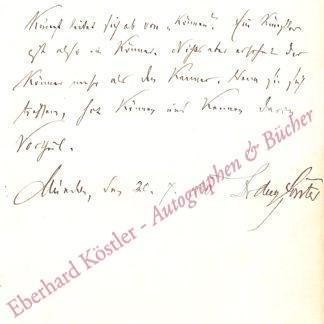 Kunst leitet sich ab von „Können". Ein Künstler
ist also ein Könner. Nichts aber erfreut den
Könner mehr als den Kenner. Wenn sie sich
treffen, hat Können und Kennen davon
Vorteil.
München, den 20. 7.
Eberhard Köstler - Autographen & Bücher